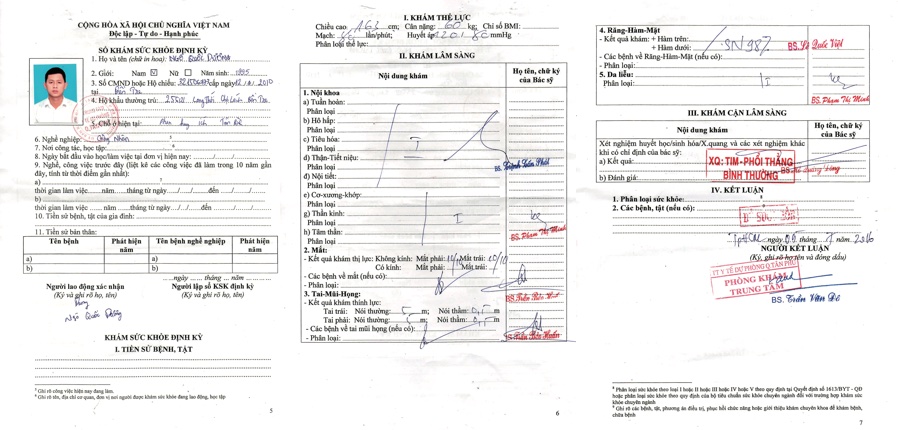 CỘNG HÒA XÃ HỘI CHỦ NGHĨA VIỆT NAM
Độc lập - Tự do - Hạnh phúc
SỔ KHÁM SỨC KHỎE ĐỊNH KỲ
1. Họ và tên (chữ in hoa): NGÔ QUỐC DƯƠNG
2. Giới: Nam ☑ Nữ □ Năm sinh: 1995
3. Số CMND hoặc Hộ chiếu: cấp ngày 12/ /2010
tại Bến Tre
4. Hộ khẩu thường trú: Bến Tre
5. Chỗ ở hiện tại:
6. Nghề nghiệp: Công Nhân
7. Nơi công tác, học tập
8. Ngày bắt đầu vào học/làm việc tại đơn vị hiện nay: ...../...../.....
9. Nghề, công việc trước đây (liệt kê các công việc đã làm trong 10 năm gần đây, tính từ thời điểm gần nhất):
a)
thời gian làm việc..... năm .....tháng từ ngày...../...../.....đến ...../...../.....
b)
thời gian làm việc..... năm .....tháng từ ngày...../...../.....đến ...../...../.....
10. Tiền sử bệnh, tật của gia đình:
11. Tiền sử bản thân:
Tên bệnh Phát hiện năm Tên bệnh nghề nghiệp Phát hiện năm
a) a)
b) b)
........ ngày ...... tháng......năm........
Người lao động xác nhận Người lập số KSK định kỳ
(Ký và ghi rõ họ, tên) (Ký và ghi rõ họ, tên)
Ngô Quốc Dương
KHÁM SỨC KHỎE ĐỊNH KỲ
I. TIỀN SỬ BỆNH, TẬT
⁵ Ghi rõ công việc hiện nay đang làm.
⁶ Ghi rõ tên, địa chỉ cơ quan, đơn vị nơi người được khám sức khỏe đang lao động, học tập
5
I. KHÁM THỂ LỰC
Chiều cao: 163 cm; Cân nặng: 60 kg; Chỉ số BMI:
Mạch: 82 lần/phút; Huyết áp: 120/80 mmHg
Phân loại thể lực:
II. KHÁM LÂM SÀNG
Nội dung khám Họ tên, chữ ký của Bác sỹ
1. Nội khoa
a) Tuần hoàn:
Phân loại
b) Hô hấp:
Phân loại
c) Tiêu hóa: I
Phân loại
d) Thận-Tiết niệu:
Phân loại
đ) Nội tiết:
Phân loại
e) Cơ-xương-khớp:
Phân loại
g) Thần kinh: I
Phân loại
h) Tâm thần:
Phân loại
BS. Phạm Thị Minh
2. Mắt:
- Kết quả khám thị lực: Không kính: Mắt phải: 10/10 Mắt trái: 10/10
Có kính: Mắt phải: Mắt trái:
- Các bệnh về mắt (nếu có):
- Phân loại:
3. Tai-Mũi-Họng:
- Kết quả khám thính lực:
Tai trái: Nói thường: 5 m; Nói thầm: 0,5 m
Tai phải: Nói thường: 5 m; Nói thầm: 0,5 m
- Các bệnh về tai mũi họng (nếu có):
- Phân loại:
6
4. Răng-Hàm-Mặt
- Kết quả khám: + Hàm trên:
+ Hàm dưới:
- Các bệnh về Răng-Hàm-Mặt (nếu có)
- Phân loại:
5. Da liễu: I
- Phân loại:
BS. Phạm Thị Minh
III. KHÁM CẬN LÂM SÀNG
Nội dung khám Họ tên, chữ ký của Bác sỹ
Xét nghiệm huyết học/sinh hóa/X.quang và các xét nghiệm khác khi có chỉ định của bác sỹ:
a) Kết quả:
XQ: TIM - PHỔI THẲNG
BÌNH THƯỜNG
b) Đánh giá:
IV. KẾT LUẬN
1. Phân loại sức khỏe:
2. Các bệnh, tật (nếu có):
TpHCM, ngày 05 tháng 7 năm 2016
NGƯỜI KẾT LUẬN
(Ký, ghi rõ họ tên và đóng dấu)
CTY TẾ DỰ PHÒNG Q.TÂN PHÚ
PHÒNG KHÁM
TRUNG TÂM
BS. Trần Văn Đe
⁸ Phân loại sức khỏe theo loại I hoặc II hoặc III hoặc IV hoặc V theo quy định tại Quyết định số 1613/BYT - QĐ hoặc phân loại sức khỏe theo quy định của bộ tiêu chuẩn sức khỏe chuyên ngành đối với trường hợp khám sức khỏe chuyên ngành
⁹ Ghi rõ các bệnh, tật, phương án điều trị, phục hồi chức năng hoặc giới thiệu khám chuyên khoa để khám bệnh, chữa bệnh
7